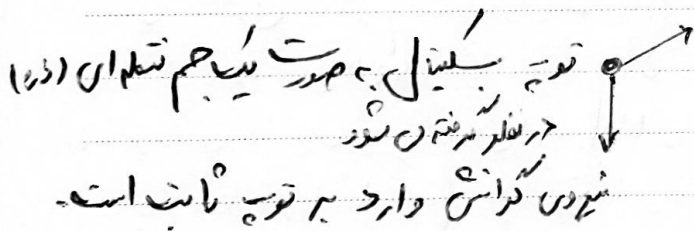 توپ بسکتبال به صورت یک جسم نقطه‌ای (ذره)
در نظر گرفته می شود
نیروی گرانش وارد بر توپ ثابت است.